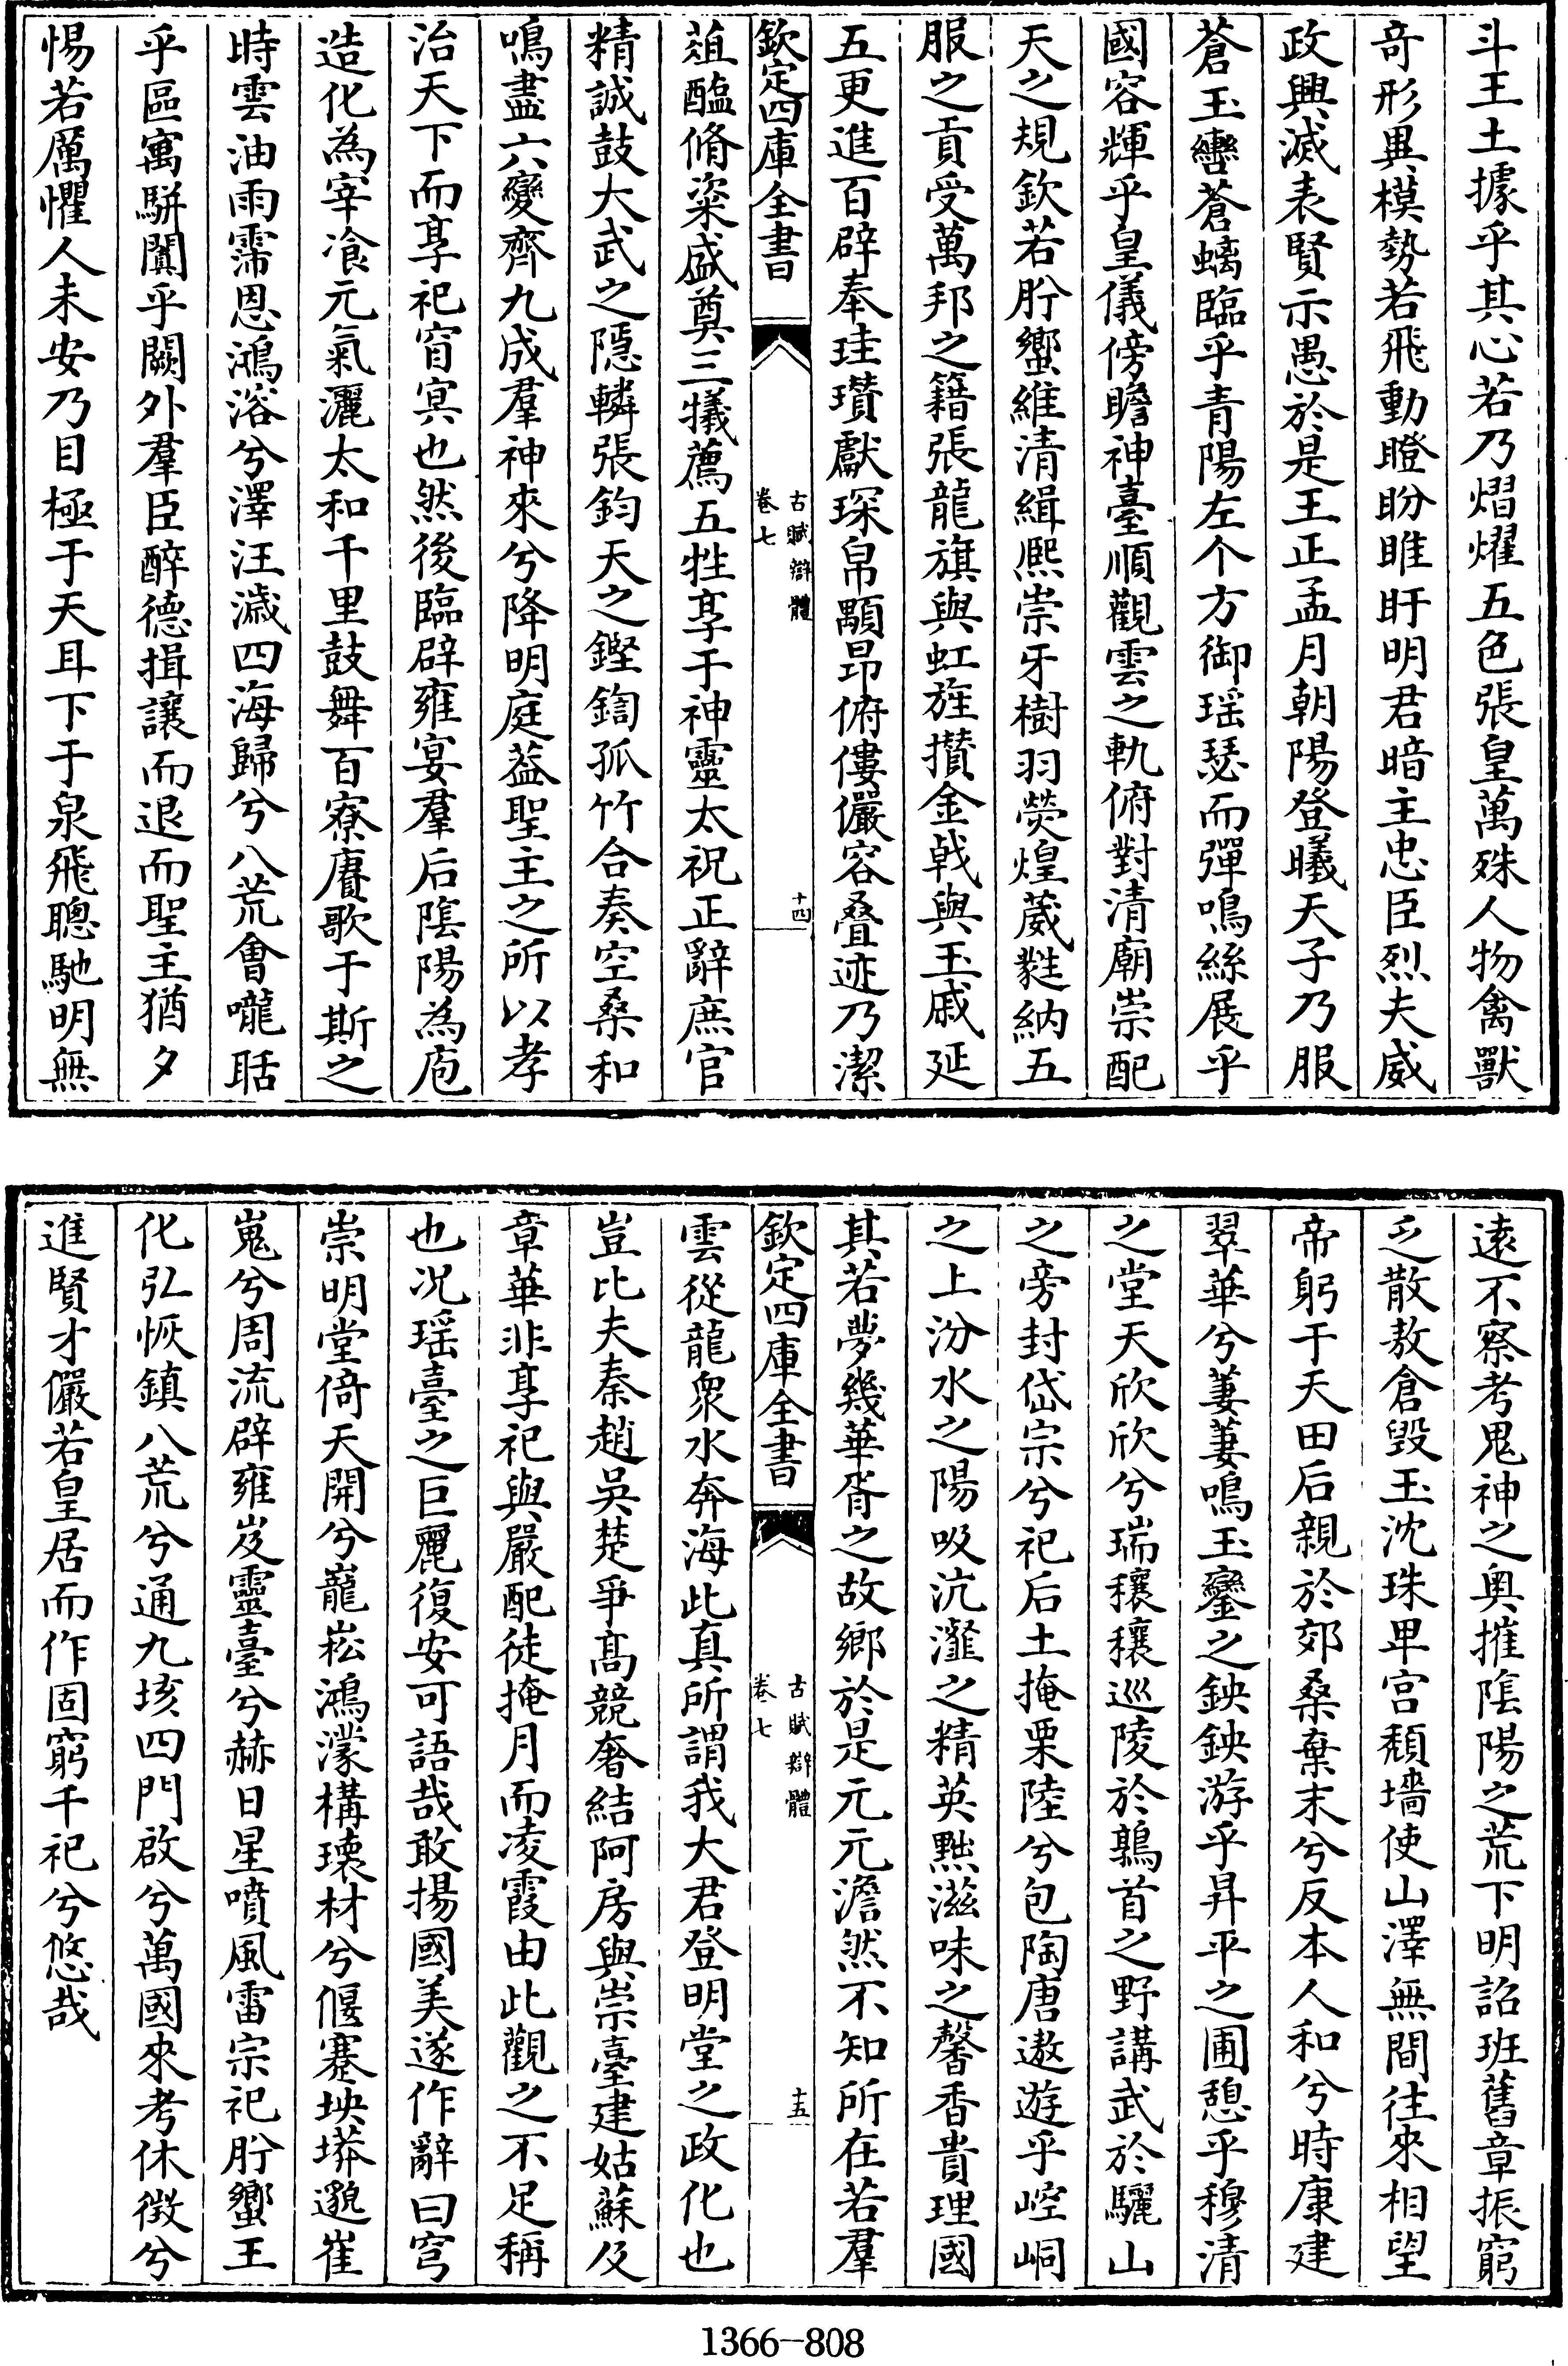 斗王土據乎其心若乃熠燿五色張皇萬殊人物禽獸
奇形異模勢若飛動瞪盼睢盱明君暗主忠臣烈夫威
政興滅表賢示愚於是王正孟月朝陽登曦天子乃服
蒼玉轡蒼螭臨乎青陽左个方御瑶瑟而彈鳴絲展乎
國容輝乎皇儀傍瞻神臺順觀雲之軌俯對清廟崇配
天之規欽若肸蠁維清緝熙崇牙樹羽熒煌葳蕤納五
服之貢受萬邦之籍張龍旗與虹旌攢金戟與玉戚延
五更進百辟奉珪瓚獻琛帛顒昂俯僂儼容叠迹乃潔
欽定四庫全書
古賦辯體
卷七
十四
葅醢脩粢盛奠三犧薦五牲享于神靈太祝正辭庶官
精誠鼓大武之隱轔張鈞天之鏗鍧孤竹合奏空桑和
鳴盡六變齊九成羣神來兮降明庭葢聖主之所以孝
治天下而享祀窅冥也然後臨辟雍宴羣后陰陽為庖
造化為宰飡元氣灑太和千里鼓舞百寮賡歌于斯之
時雲油雨霈恩鴻溶兮澤汪濊四海歸兮八荒會嚨聒
乎區寓駢闐乎闕外羣臣醉德揖讓而退而聖主猶夕
惕若厲懼人未安乃目極于天耳下于泉飛聰馳明無
遠不察考鬼神之奥摧陰陽之荒下明詔班舊章振窮
乏散敖倉毀玉沈珠卑宫頹墻使山澤無間往來相望
帝躬于天田后親於郊桑棄末兮反本人和兮時康建
翠華兮萋萋鳴玉鑾之鉠鉠游乎昇平之圃憩乎穆清
之堂天欣欣兮瑞穰穰巡陵於鶉首之野講武於驪山
之旁封岱宗兮祀后土掩栗陸兮包陶唐遨遊乎崆峒
之上汾水之陽吸沆瀣之精英黜滋味之馨香貴理國
其若夢幾華胥之故鄉於是元元澹然不知所在若羣
欽定四庫全書
古賦辯體
卷七
十五
雲從龍衆水奔海此真所謂我大君登明堂之政化也
豈比夫秦趙吳楚爭髙競奢結阿房與崇臺建姑蘇及
章華非享祀與嚴配徒掩月而凌霞由此觀之不足稱
也况瑶臺之巨麗復安可語哉敢揚國美遂作辭曰穹
崇明堂倚天開兮巃嵷鴻濛構瓌材兮偃蹇坱莽邈崔
嵬兮周流辟雍岌靈臺兮赫日星噴風雷宗祀肸蠁王
化弘恢鎮八荒兮通九垓四門啟兮萬國來考休徴兮
進賢才儼若皇居而作固窮千祀兮悠哉
1366-808